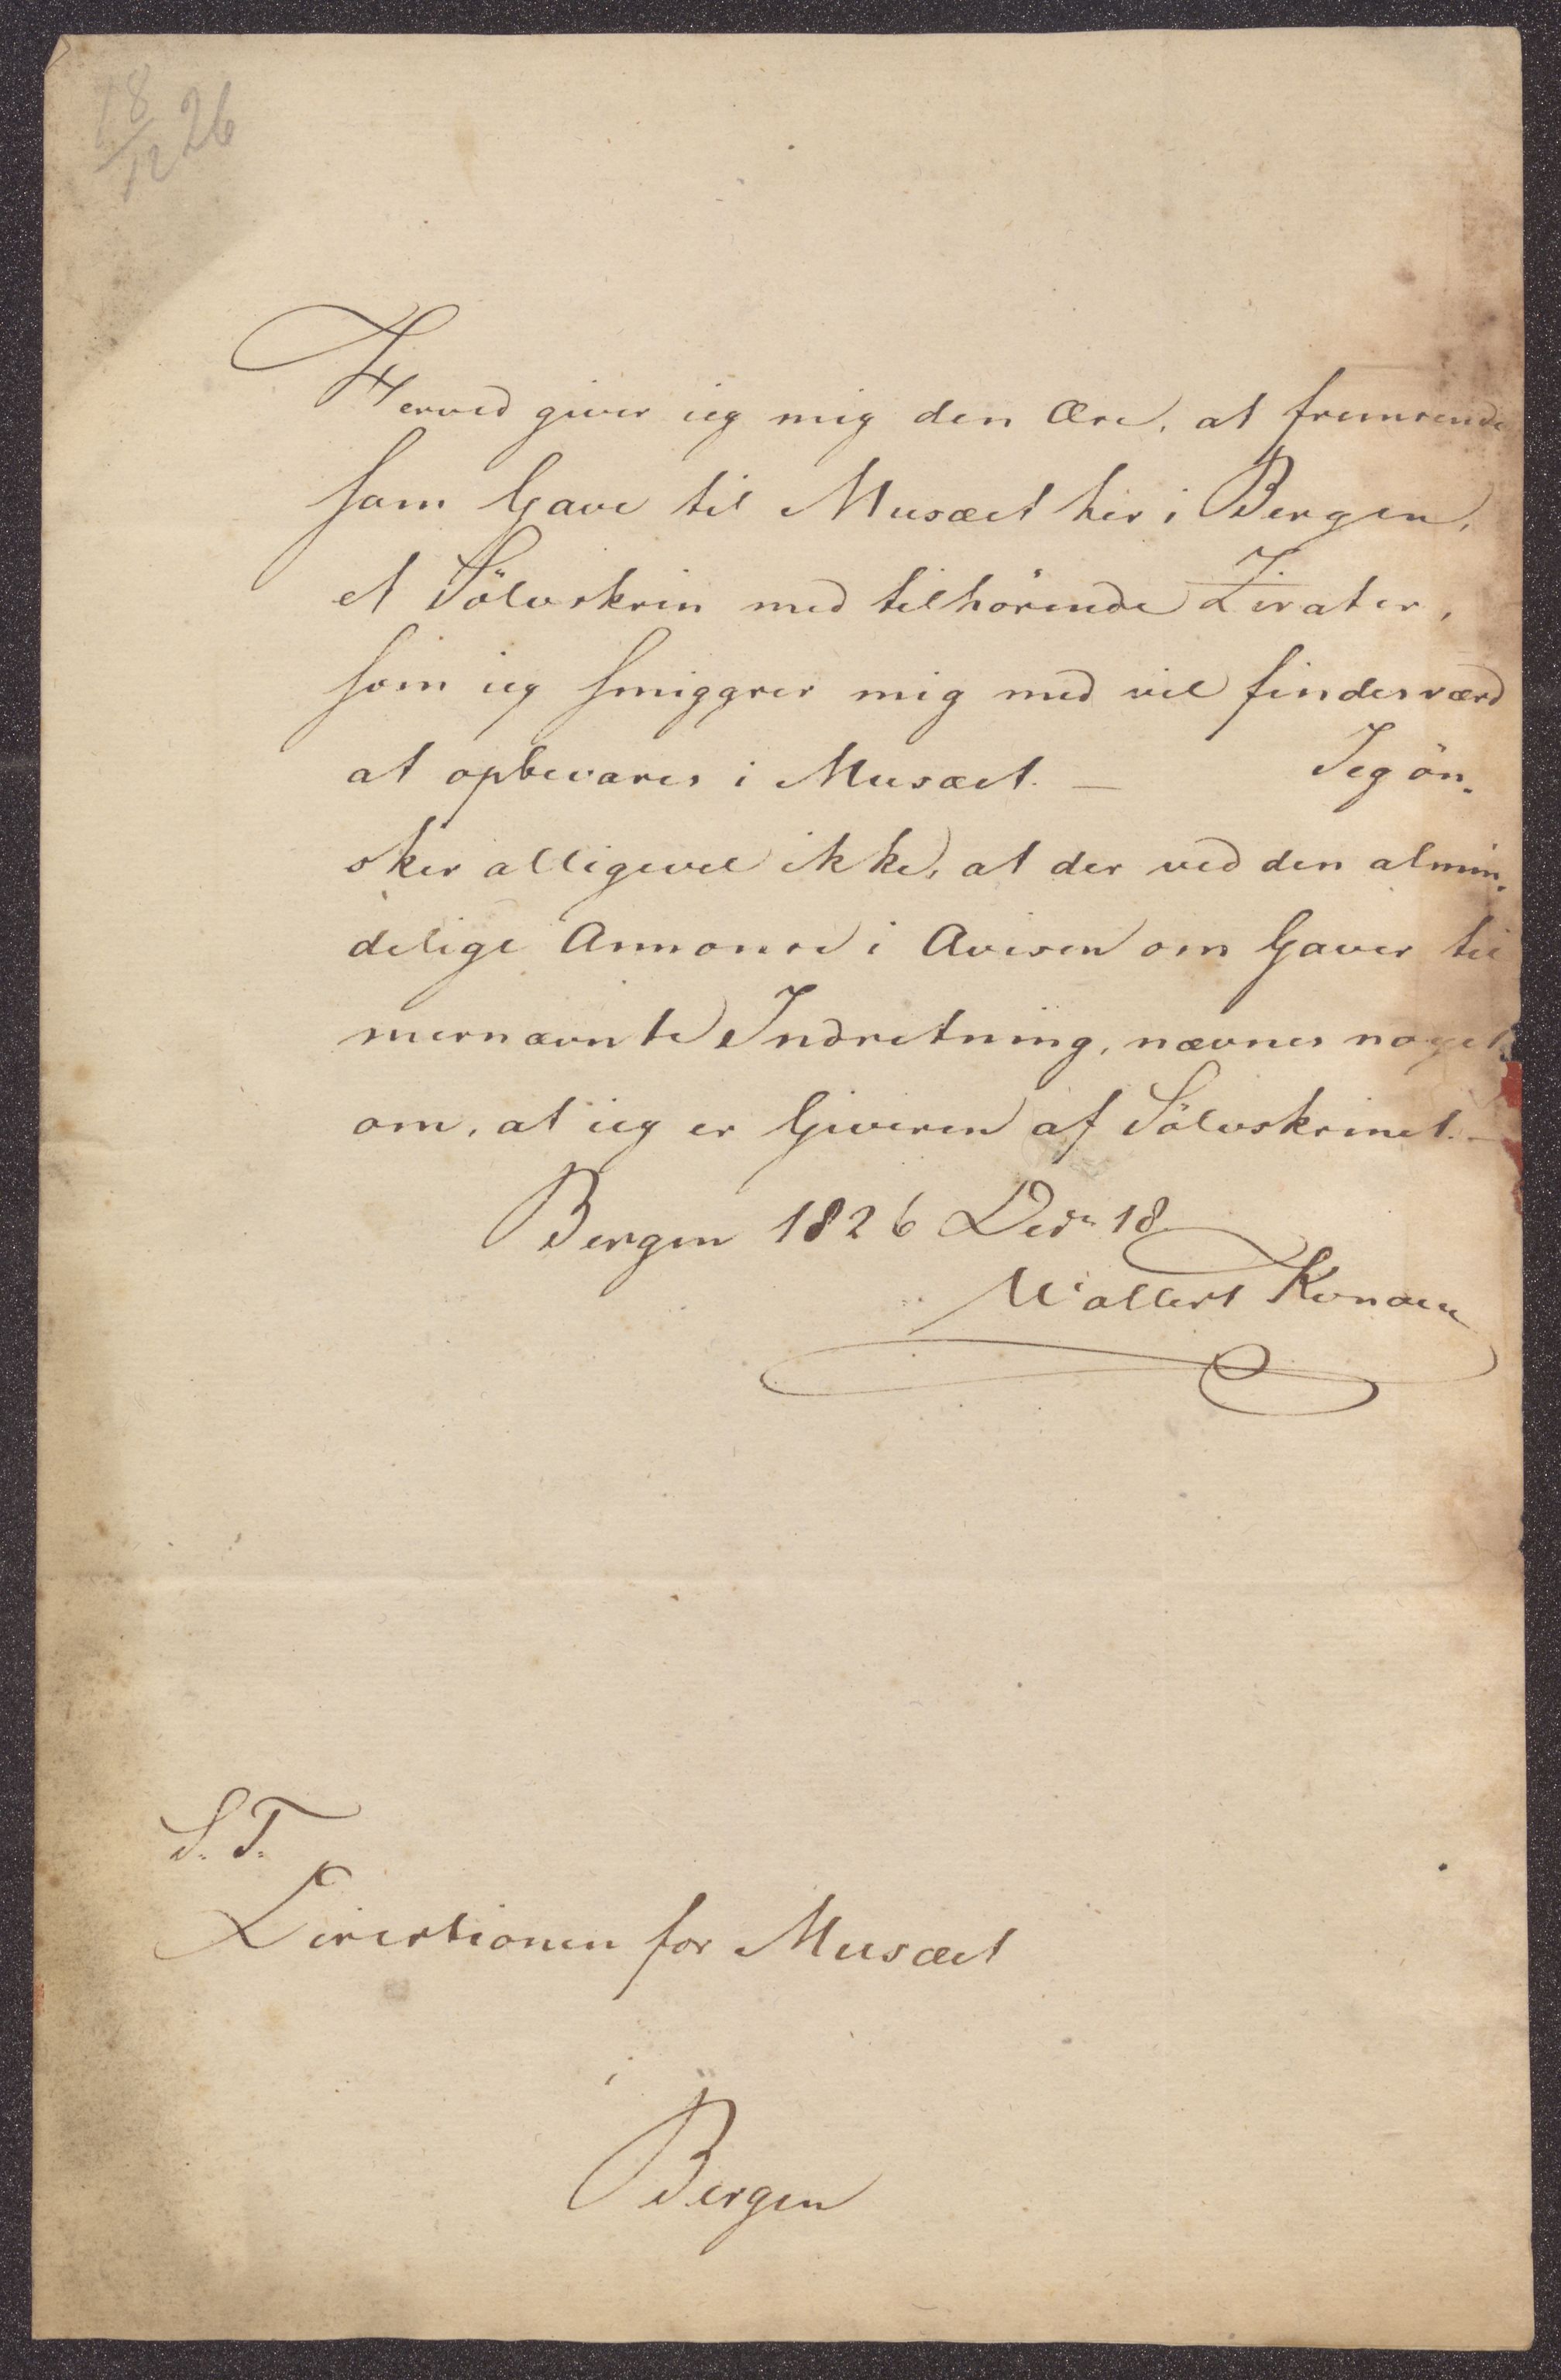 18/12 26
Herved giver ieg mig den Ære, at fremsende
som Gave til Musæet her i Bergen,
et Sölvskrin med tilhörende Zirater,
som ieg smiggrer mig med vil findes værd
at opbevares i Musæet. — Jeg ön-
sker alligevel ikke, at der ved den almin-
delige Annonce i Avisen om Gaver til
mernævnte Indretning, nævnes noget
om, at ieg er Giveren af Sölvskrinet. —
Bergen 1826 Decr 18
Wollert Konow
S. T.
Directionen for Musæet
i
Bergen